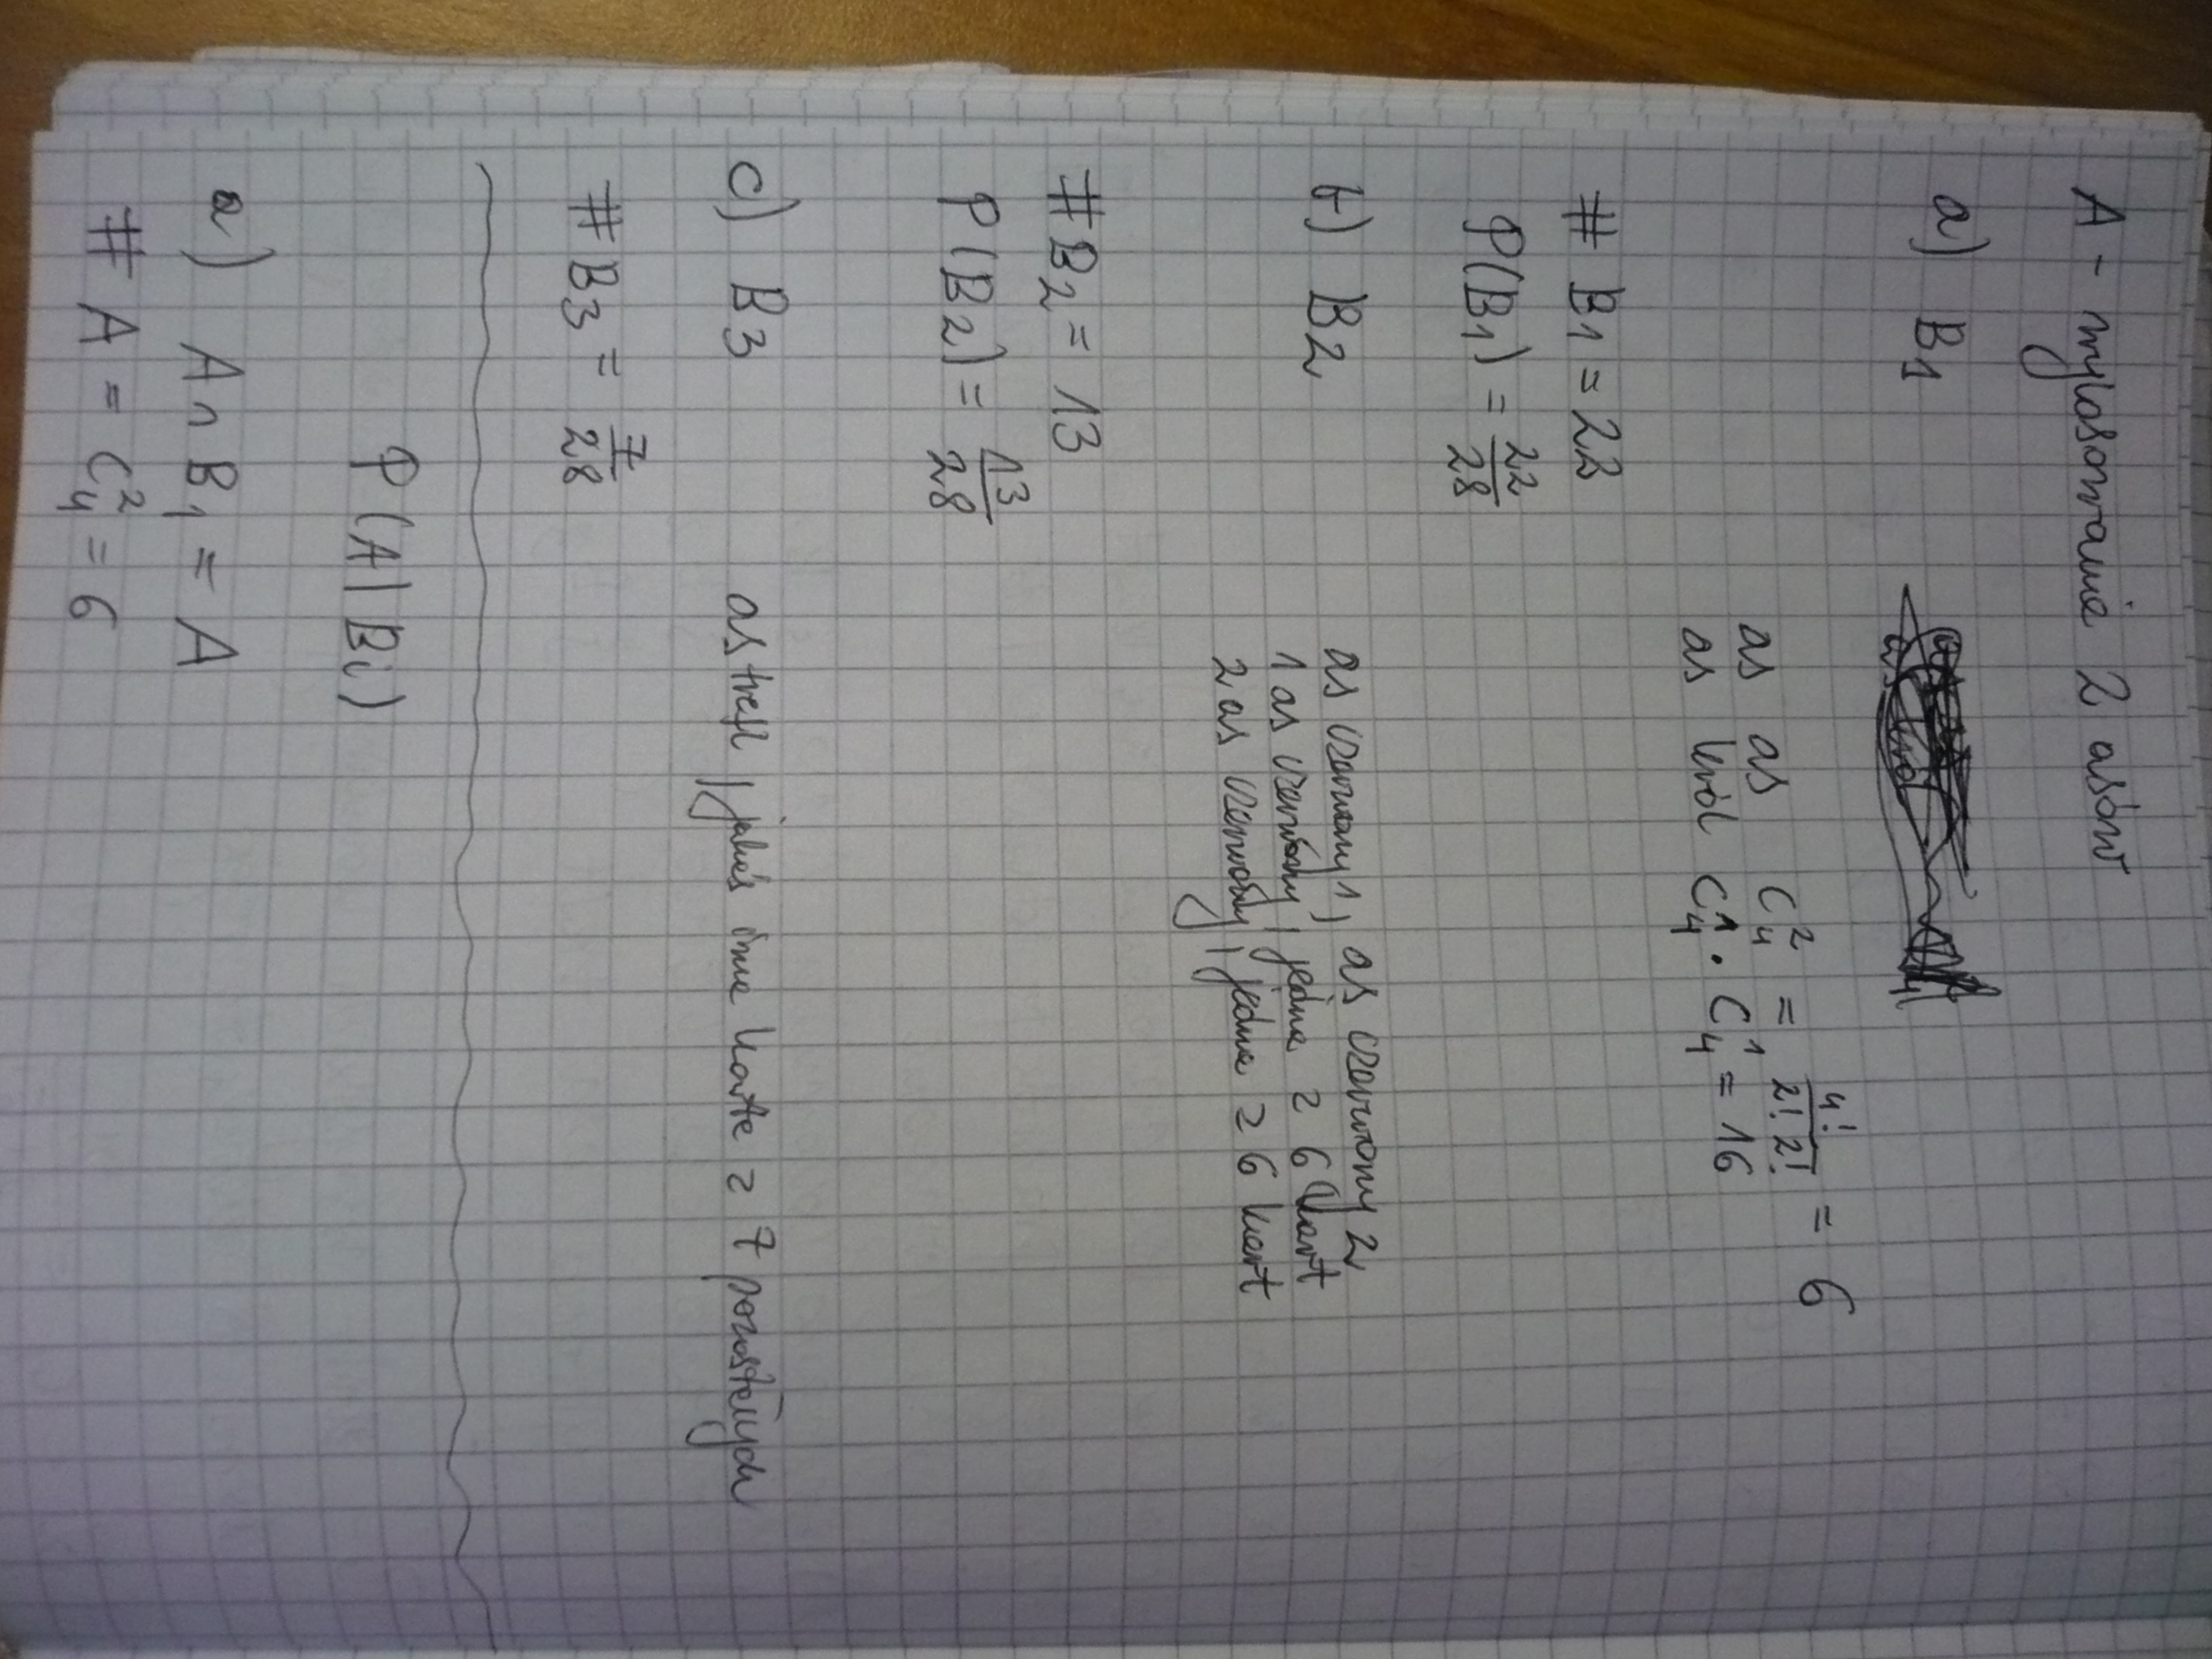 A - wylosowanie 2 asów
a) B1
as as C₄² = 4!/2!2! = 6
as król C₄¹ · C₄¹ = 16
# B1 = 22
P(B1) = 22/28
b) B2
as czerwony 1, as czerwony 2
1 as czerwony, jedna z 6 kart
2 as czerwony, jedna z 6 kart
# B2 = 13
P(B2) = 13/28
c) B3
as trefl, jakaś inna karta z 7 pozostałych
# B3 = 7/28
P(A|Bi)
a) A ∩ B1 = A
# A = C₄² = 6